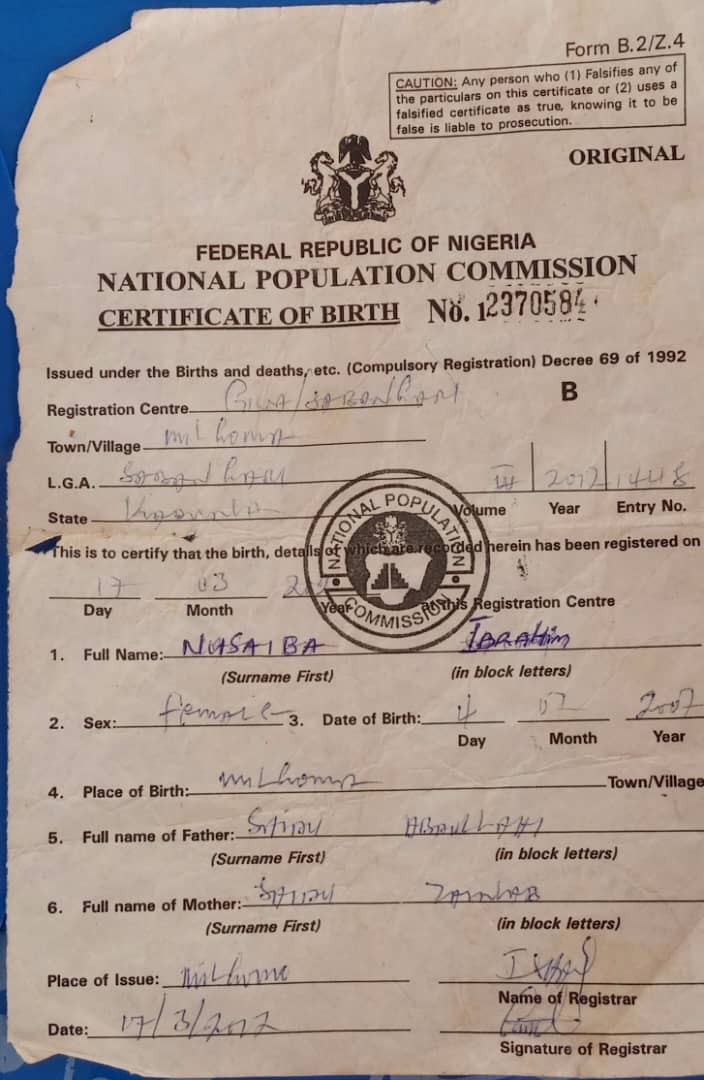 Form B.2/Z.4
CAUTION: Any person who (1) Falsifies any of
the particulars on this certificate or (2) uses a
falsified certificate as true, knowing it to be
false is liable to prosecution.
ORIGINAL
FEDERAL REPUBLIC OF NIGERIA
NATIONAL POPULATION COMMISSION
CERTIFICATE OF BIRTH No. 12370584
Issued under the Births and deaths, etc. (Compulsory Registration) Decree 69 of 1992
Registration Centre B
Town/Village
L.G.A. SABON GARI III 2012 1448
State Kaduna Volume Year Entry No.
NATIONAL POPULATION COMMISSION
This is to certify that the birth, details of which are recorded herein has been registered on
17 03
Day Month Year at this Registration Centre
1. Full Name: NUSAIBA IBRAHIM
(Surname First) (in block letters)
2. Sex: female 3. Date of Birth: 4 2007
Day Month Year
4. Place of Birth: Town/Village
5. Full name of Father: ABDULLAHI
(Surname First) (in block letters)
6. Full name of Mother: ZAINAB
(Surname First) (in block letters)
Place of Issue:
Name of Registrar
Date: 17/3/2012
Signature of Registrar